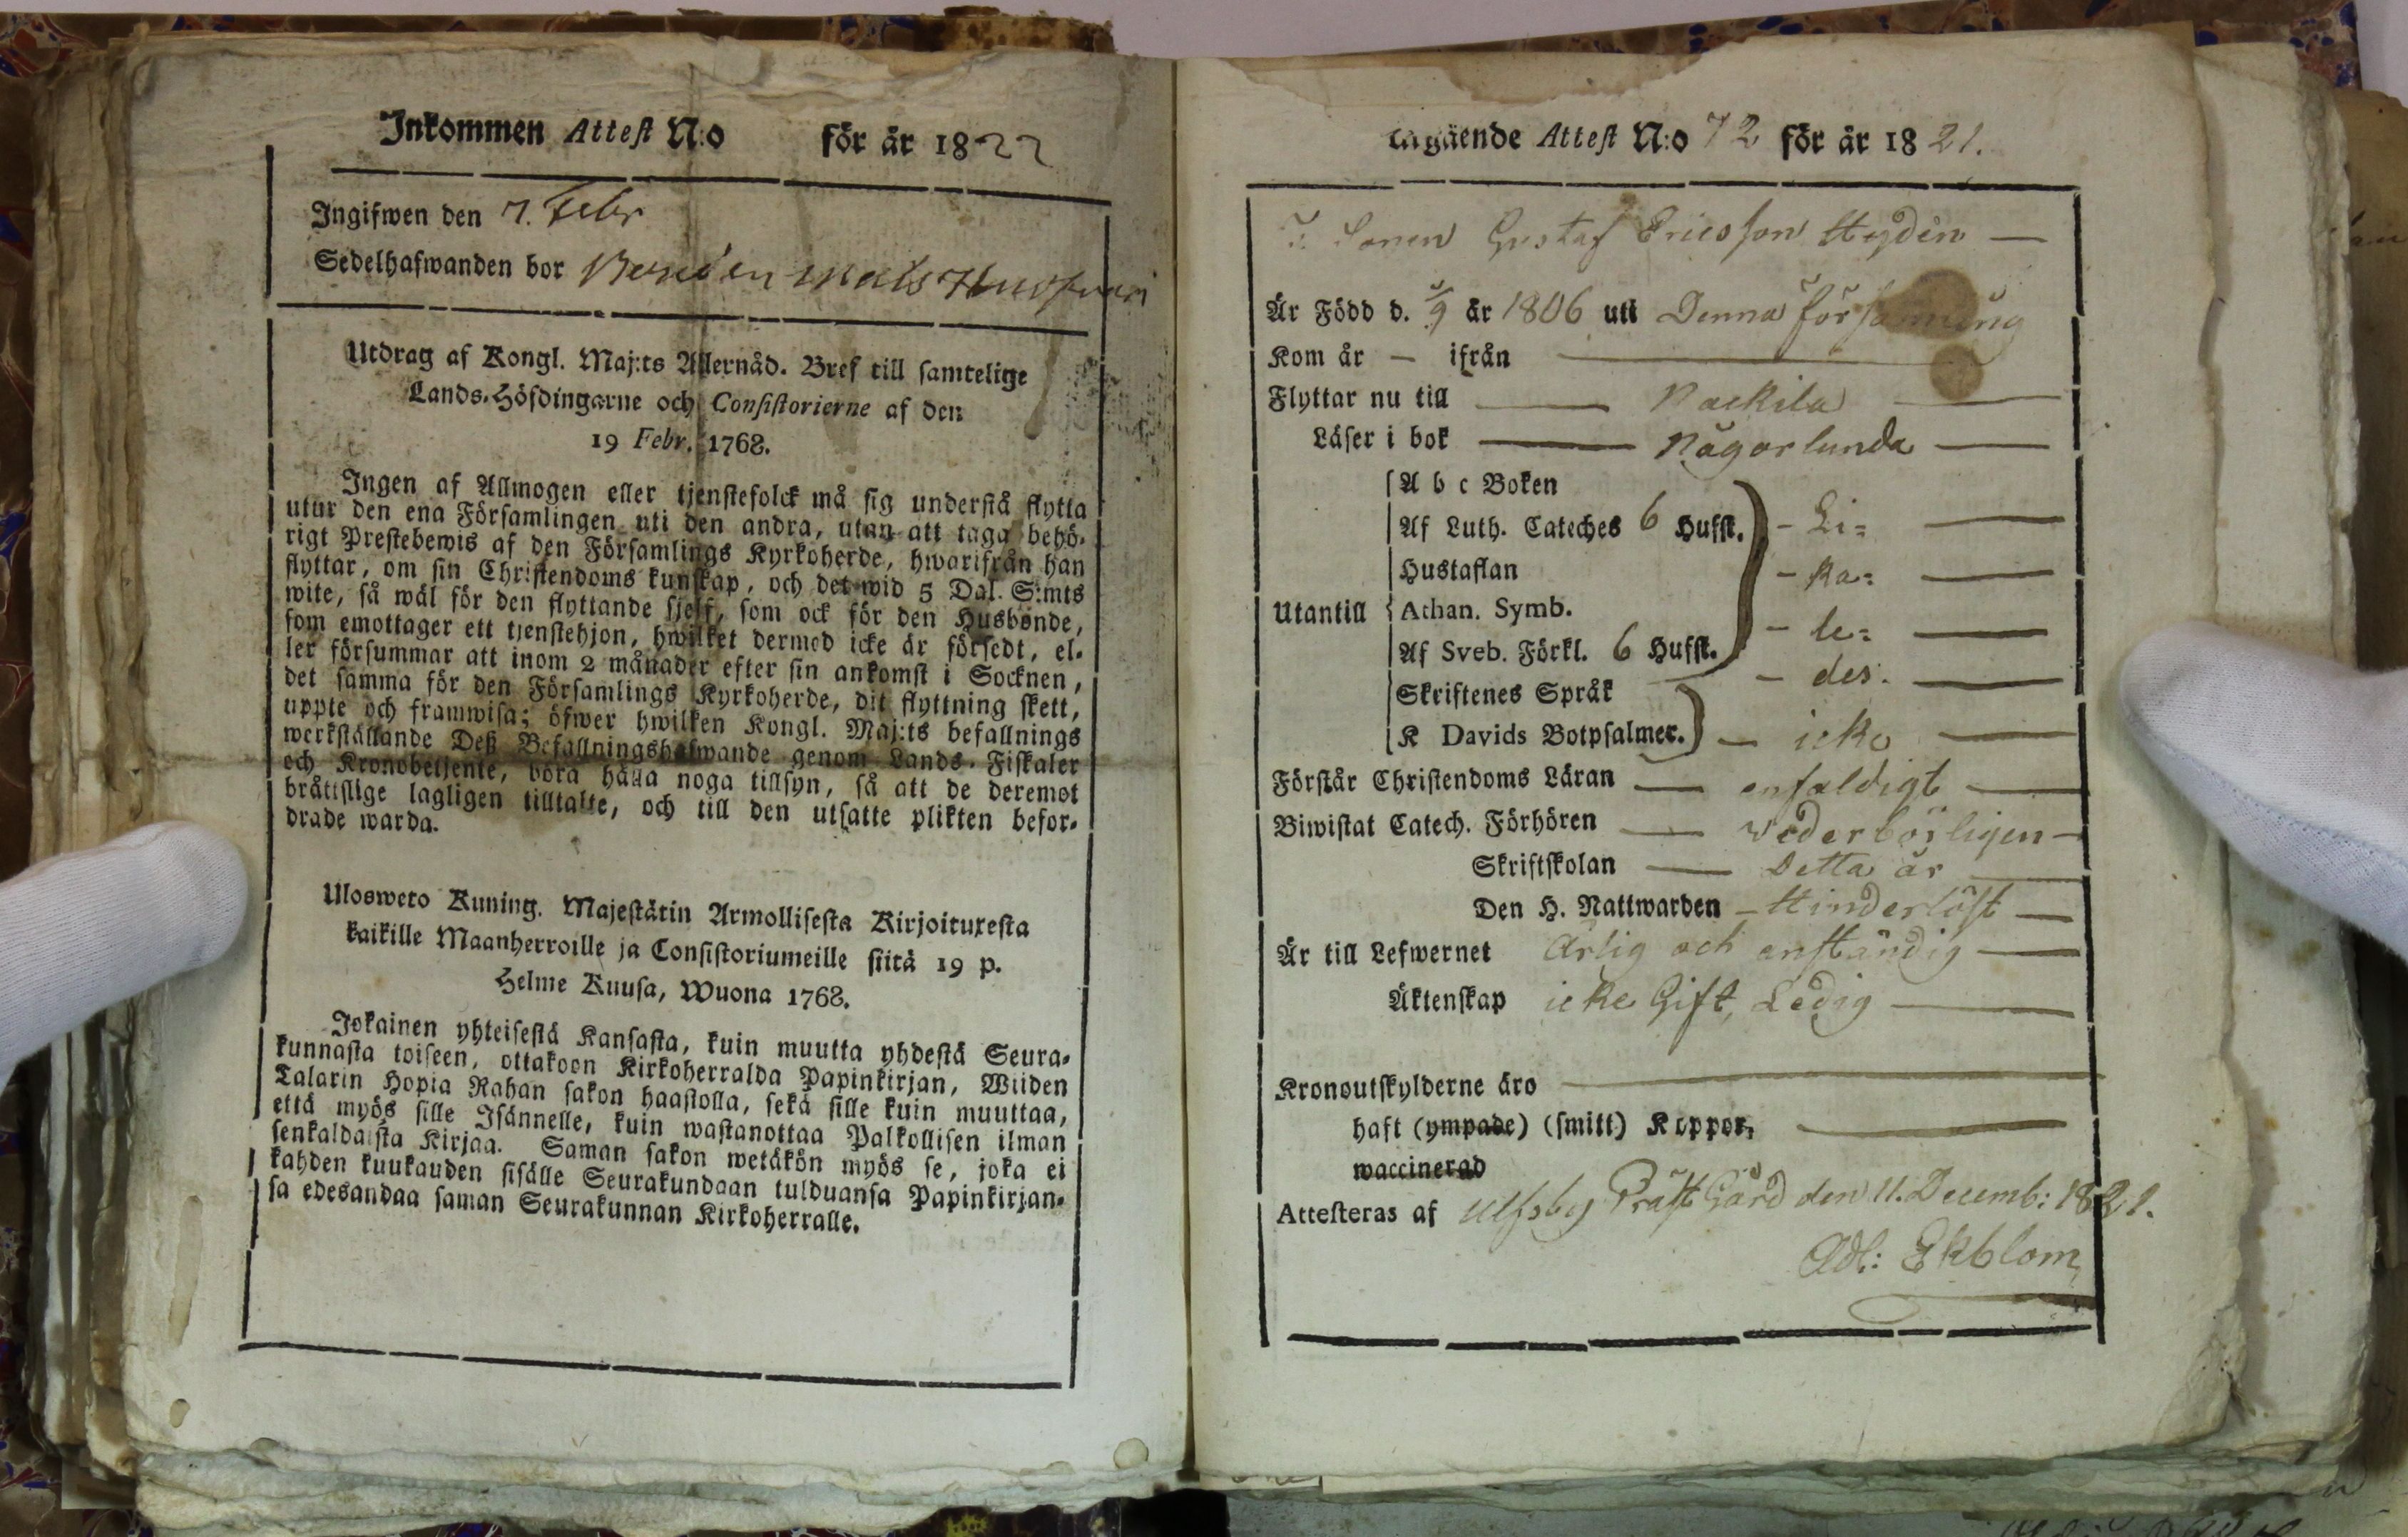 Inkommen Attest N:o för år 1822
Ingifwen den 7. Febr
Sedelhafwanden bor
Utdrag af Kongl. Maj:ts Allernåd. Bref till samtelige
Lands-Höfdingarne och Consistorierne af den
19 Febr. 1768.
Ingen af Allmogen eller tjenstefolck må sig understå flytta
utur den ena Församlingen uti den andra, utan att taga behö-
rigt Prestebewis af den Församlings Kyrkoherde, hwarifrån han
flyttar, om sin Christendoms kunskap, och det wid 5 Dal. S:mts
wite, så wäl för den flyttande sjelf, som ock för den Husbonde,
som emottager ett tjenstehjon, hwilket dermed icke är försedt, el-
ler försummar att inom 2 månader efter sin ankomst i Socknen,
det samma för den Församlings Kyrkoherde, dit flyttning skett,
uppte och framwisa; öfwer hwilken Kongl. Maj:ts befallnings
werkställande Deß Befallningshafwande genom Lands-Fiskaler
och Kronobetjente, böra hålla noga tillsyn, så att de deremot
bråttslige lagligen tilltalte, och till den utsatte plikten befor-
drade warda.
Ulosweto Kuning. Majestätin Armollisesta Kirjoituxesta
kaikille Maanherroille ja Consistoriumeille siitä 19 p.
Helme Kuusa, Wuona 1768.
Jokainen yhteisestä Kansasta, kuin muutta yhdestä Seura-
kunnasta toiseen, ottakoon Kirkoherralda Papinkirjan, Wiiden
Talarin Hopia Rahan sakon haastolla, sekä sille kuin muuttaa,
että myös sille Isännelle, kuin wastanottaa Palkollisen ilman
senkaldaista Kirjaa. Saman sakon wetäkön myös se, joka ei
kahden kuukauden sisälle Seurakundaan tulduansa Papinkirjan-
sa edesandaa saman Seurakunnan Kirkoherralle.
gående Attest N:o 72 för år 1821.
Sonen Gustaf Ericsson Hydén
Är Född d. 5/9 år 1806 uti Denna församling
Kom år — ifrån
Flyttar nu till Nackila
Läser i bok Någorlunda
A b c Boken
Af Luth. Cateches 6 Hufst. - Li=
Hustaflan - ka=
Utantill Athan. Symb. - le=
Af Sveb. Förkl. 6 Hufst. - des.
Skriftenes Språk
K Davids Botpsalmer. — icke
Förstår Christendoms Läran — enfaldigt
Biwistat Catech. Förhören — wederbörligen
Skriftskolan — Detta år
Den H. Nattwarden — Hinderlöst
Är till Lefwernet Ärlig och anständig
Äktenskap icke Gift, Ledig
Kronoutskylderne äro
haft (ympade) (smitt) Koppor,
waccinerad
Attesteras af Ulfsby Präst Gård den 11. Decemb: 1821.
Adl: Ekblom